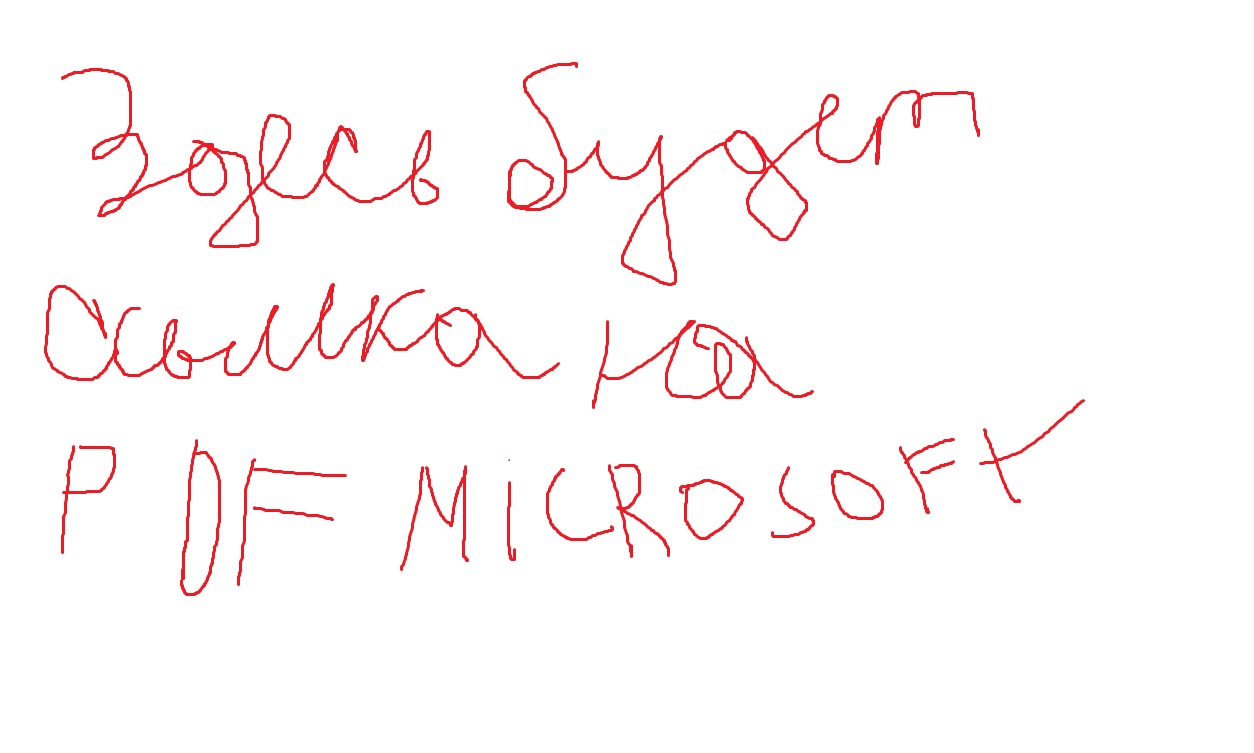 Здесь будет
ссылка на
PDF MiCROSOFt